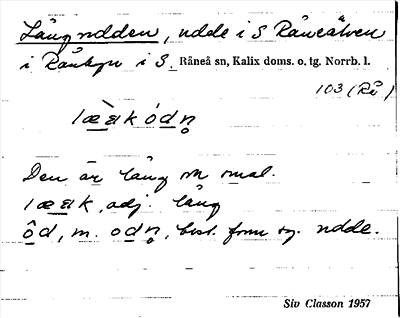 Långudden, udde i S Råneälven
i Rånbyn i S. Råneå sn, Kalix doms. o. tg. Norrb. l.
103 (Rå)
læ̀æk ódn̥
Den är lång o smal.
lææk, adj. lång
ôd, m. odn̥, best. form sg. udde.
Siv Classon 1957